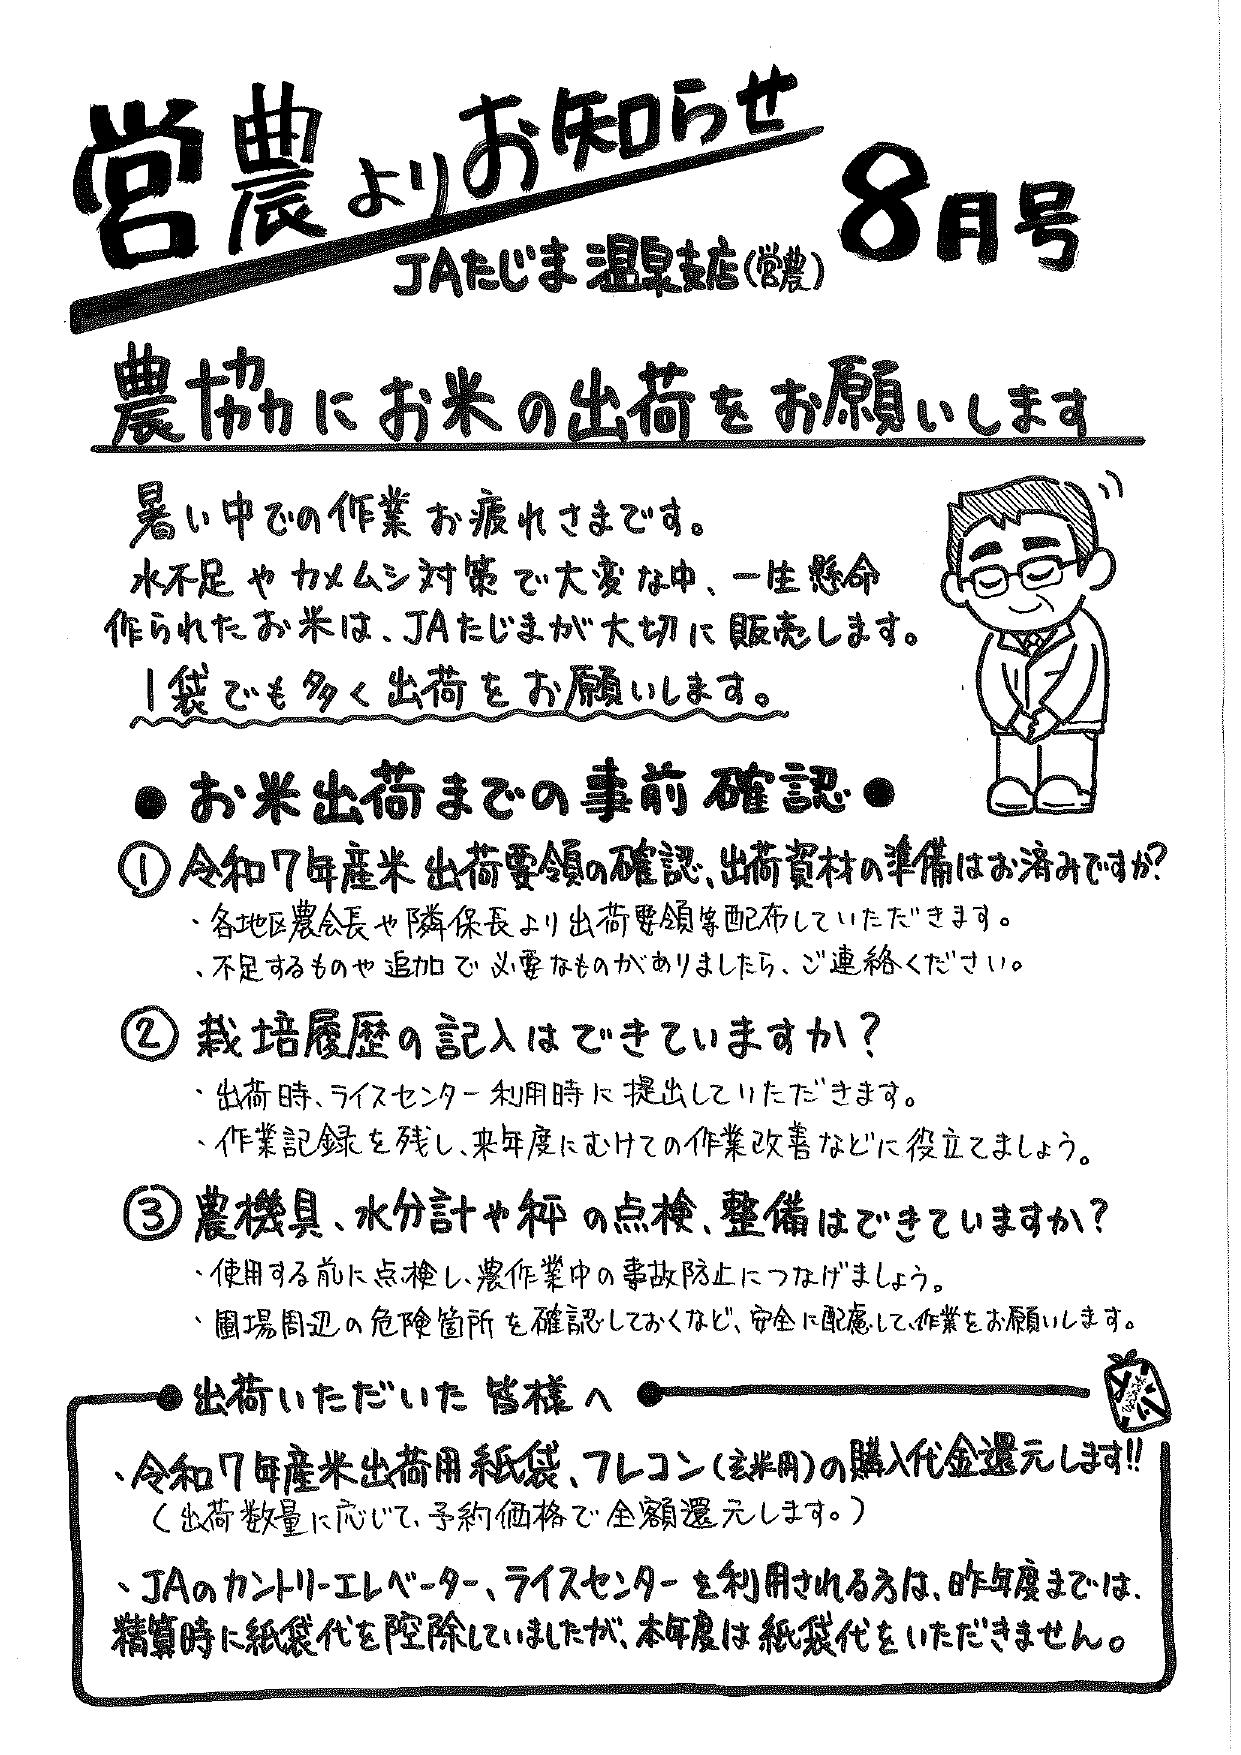 営農よりお知らせ
8月号
JAたじま温泉支店(営農)
農協にお米の出荷をお願いします
暑い中での作業お疲れさまです。
水不足やカメムシ対策で大変な中、一生懸命
作られたお米は、JAたじまが大切に販売します。
1袋でも多く出荷をお願いします。
●お米出荷までの事前確認●
① 令和7年産米出荷要領の確認、出荷資材の準備はお済みですか?
・各地区農会長や隣保長より出荷要領等配布していただきます。
・不足するものや追加で必要なものがありましたら、ご連絡ください。
② 栽培履歴の記入はできていますか?
・出荷時、ライスセンター利用時に提出していただきます。
・作業記録を残し、来年度にむけての作業改善などに役立てましょう。
③ 農機具、水分計や秤の点検、整備はできていますか?
・使用する前に点検し、農作業中の事故防止につなげましょう。
・圃場周辺の危険箇所を確認しておくなど、安全に配慮して、作業をお願いします。
●出荷いただいた皆様へ●
・令和7年産米出荷用紙袋、フレコン(玄米用)の購入代金還元します!!
(出荷数量に応じて、予約価格で全額還元します。)
・JAのカントリーエレベーター、ライスセンターを利用される方は、昨年度までは、
精算時に紙袋代を控除していましたが、本年度は紙袋代をいただきません。